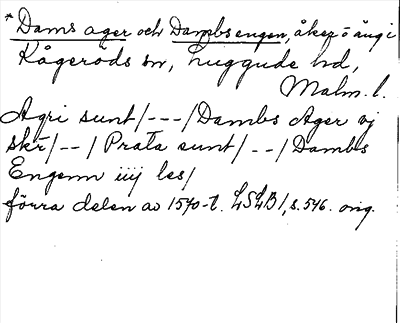 * Dams ager och Dambsengen, åker o äng i
Kågeröds sn, Luggude hd,
Malm. l.
Agri sunt/---/Dambs Ager vj
skr/--/Prata sunt/--/Dambs
Engenn iiij les/
förra delen av 1570-t. LSLB 1, s. 546. orig.